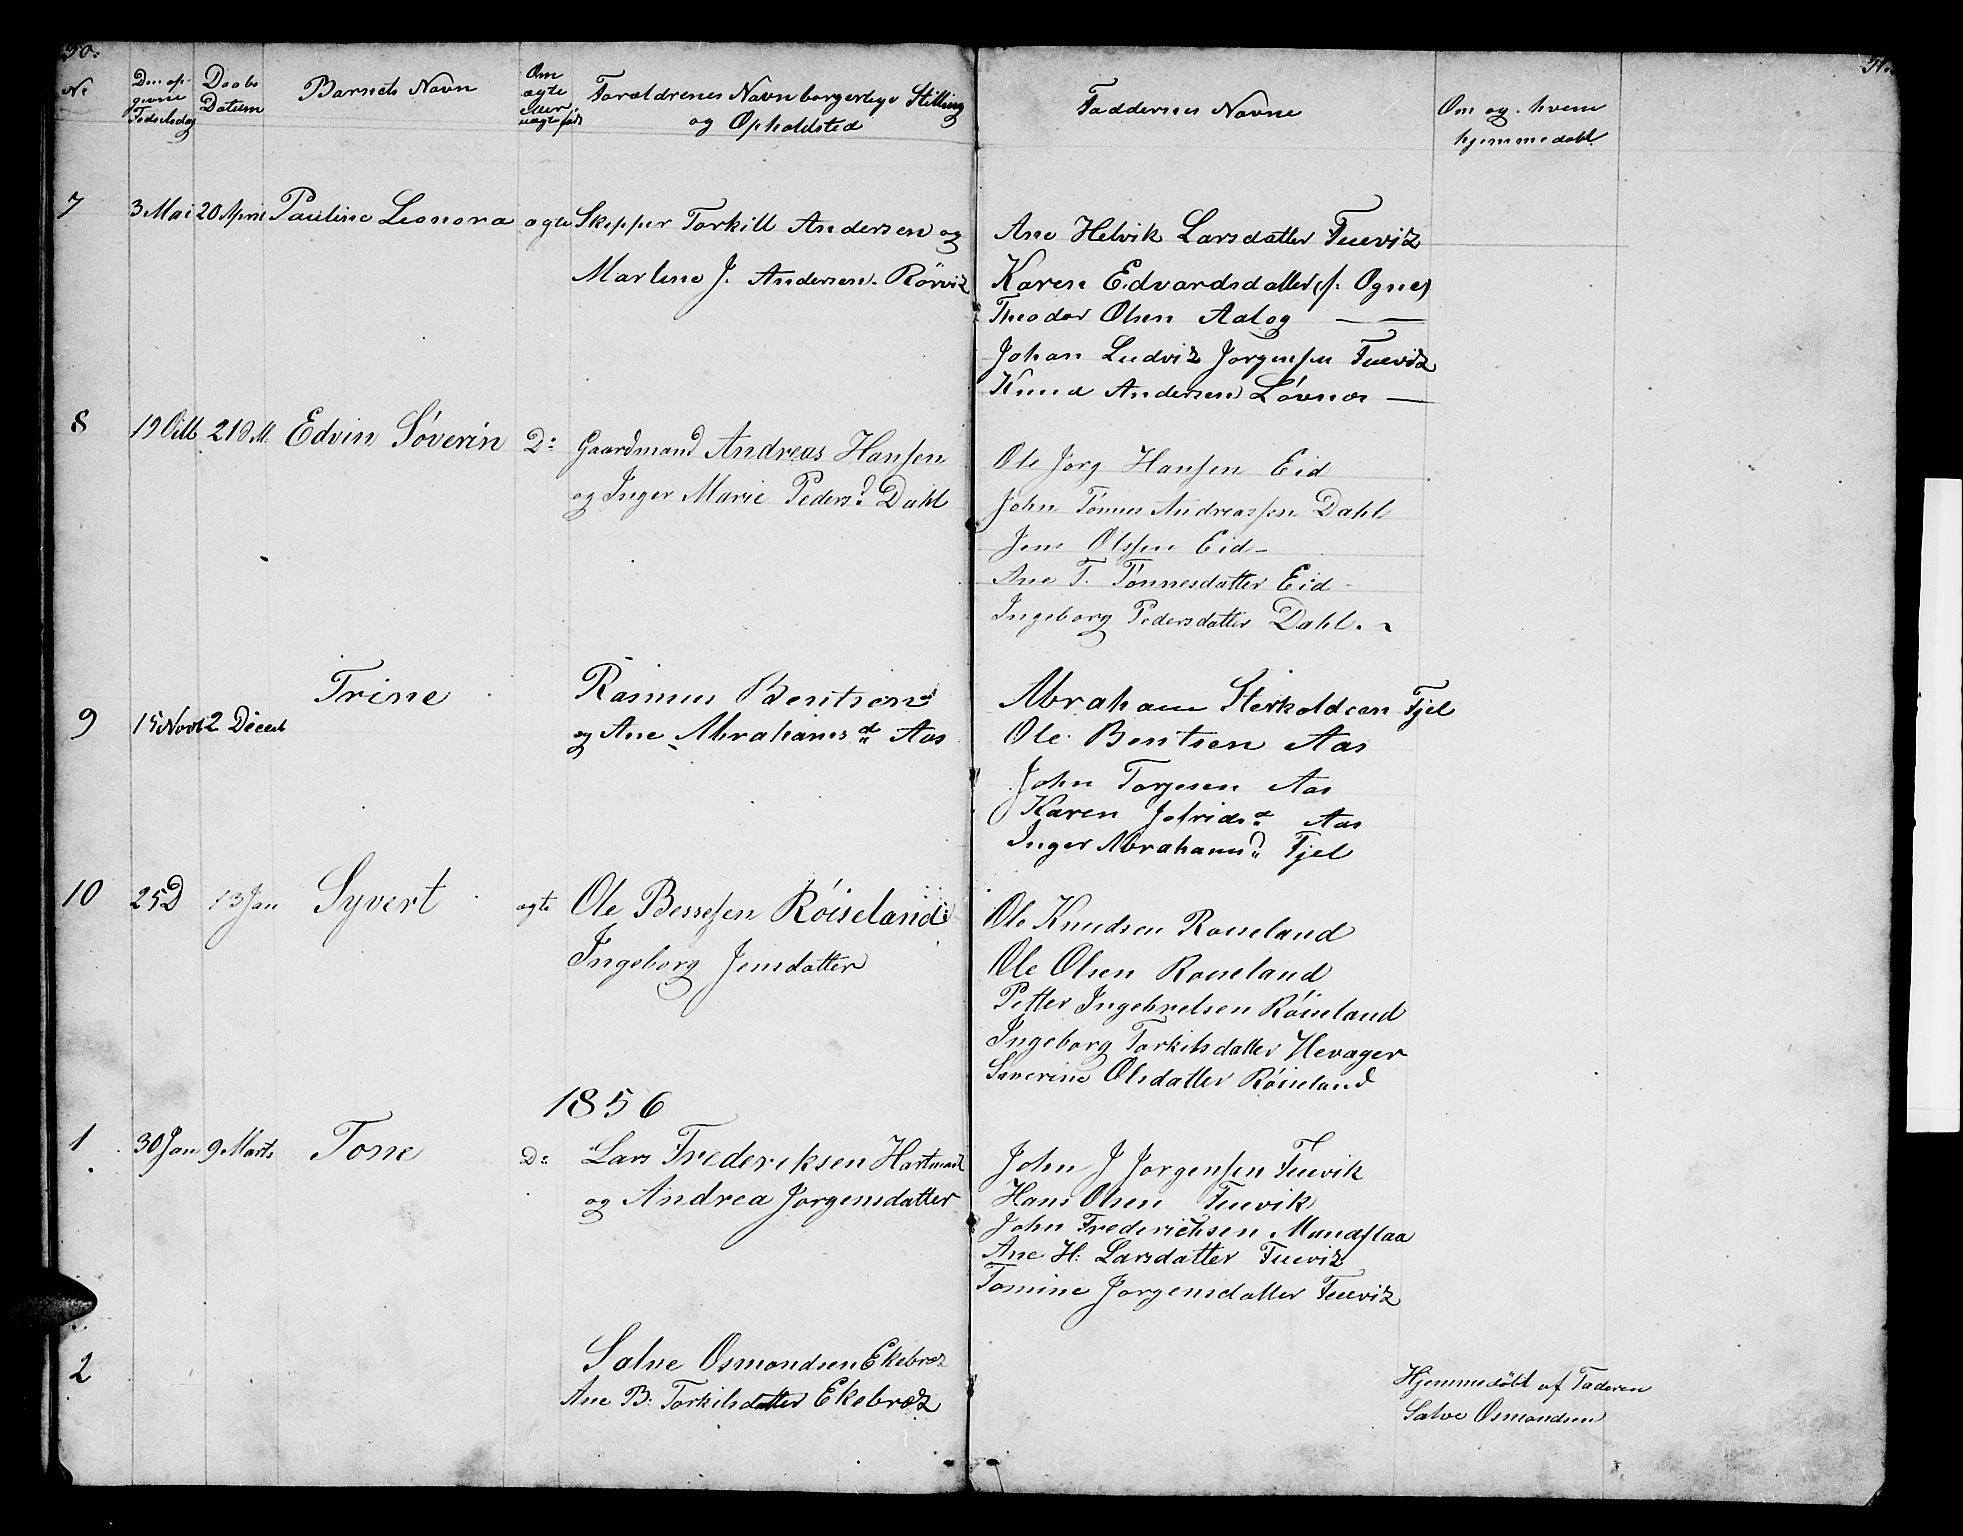 50.
51.
No
Den op-
givne
Fødselsdag
Daabs
Datum
Barnets Navn
Om
ægte
eller
uægte født
Forældrenes Navn borgerlige Stilling
og Opholdsted
Faddernes Navne
Om og hvem
hjemmedøbt
7 3 Mai 20 April Pauline Leonora ægte Skipper Torkill Andersen og
Marlene J. Andersen. Rörvik
Ane Helvik Larsdatter Tuevik
Karen Edvardsdatter
Theodor Olsen Aalog — —
Johan Ludvik Jørgensen Tuevik
Knud Andersen Løvnæs —
8 19 Octb 21 d.M. Edvin Söverin Do Gaardmand Andreas Hansen
og Inger Marie Pedersd. Dahl
Ole Jørg Hansen Eid
John Tönnes Andreassen Dahl
Jens Olsen Eid –
Ane T. Tönnesdatter Eid –
Ingeborg Pedersdatter Dahl.
9 15 Novb 2 Deceb Trine Rasmus Bentsen
og Ane Abrahamsd. Aas
Abraham Sterkoldsen Fjel
Ole Bentsen Aas
John Torjesen Aas
Karen Aas
Inger Abrahamsd. Fjel
10 25 D 13 Jan Syvert ægte Ole Bessesen Röiseland
Ingeborg Jensdatter
Ole Knudsen Röiseland
Ole Olsen Röiseland
Petter Ingebretsen Röiseland
Ingeborg Torkilsdatter Hevager
Severine Olsdatter Röiseland
1856
1 30 Jan 9 Marts Tone Do Lars Frederiksen Hartmark
og Andrea Jørgensdatter
John J Jørgensen Tuevik
Hans Olsen Tuevik
John Frederichsen Mandflaa
Ane H: Larsdatter Tuevik
Tomine Jørgensdatter Tuevik
2 Salve Osmondsen Ekebræk
Ane B: Torkilsdatter Ekebræk
Hjemmedöbt af Faderen
Salve Osmondsen